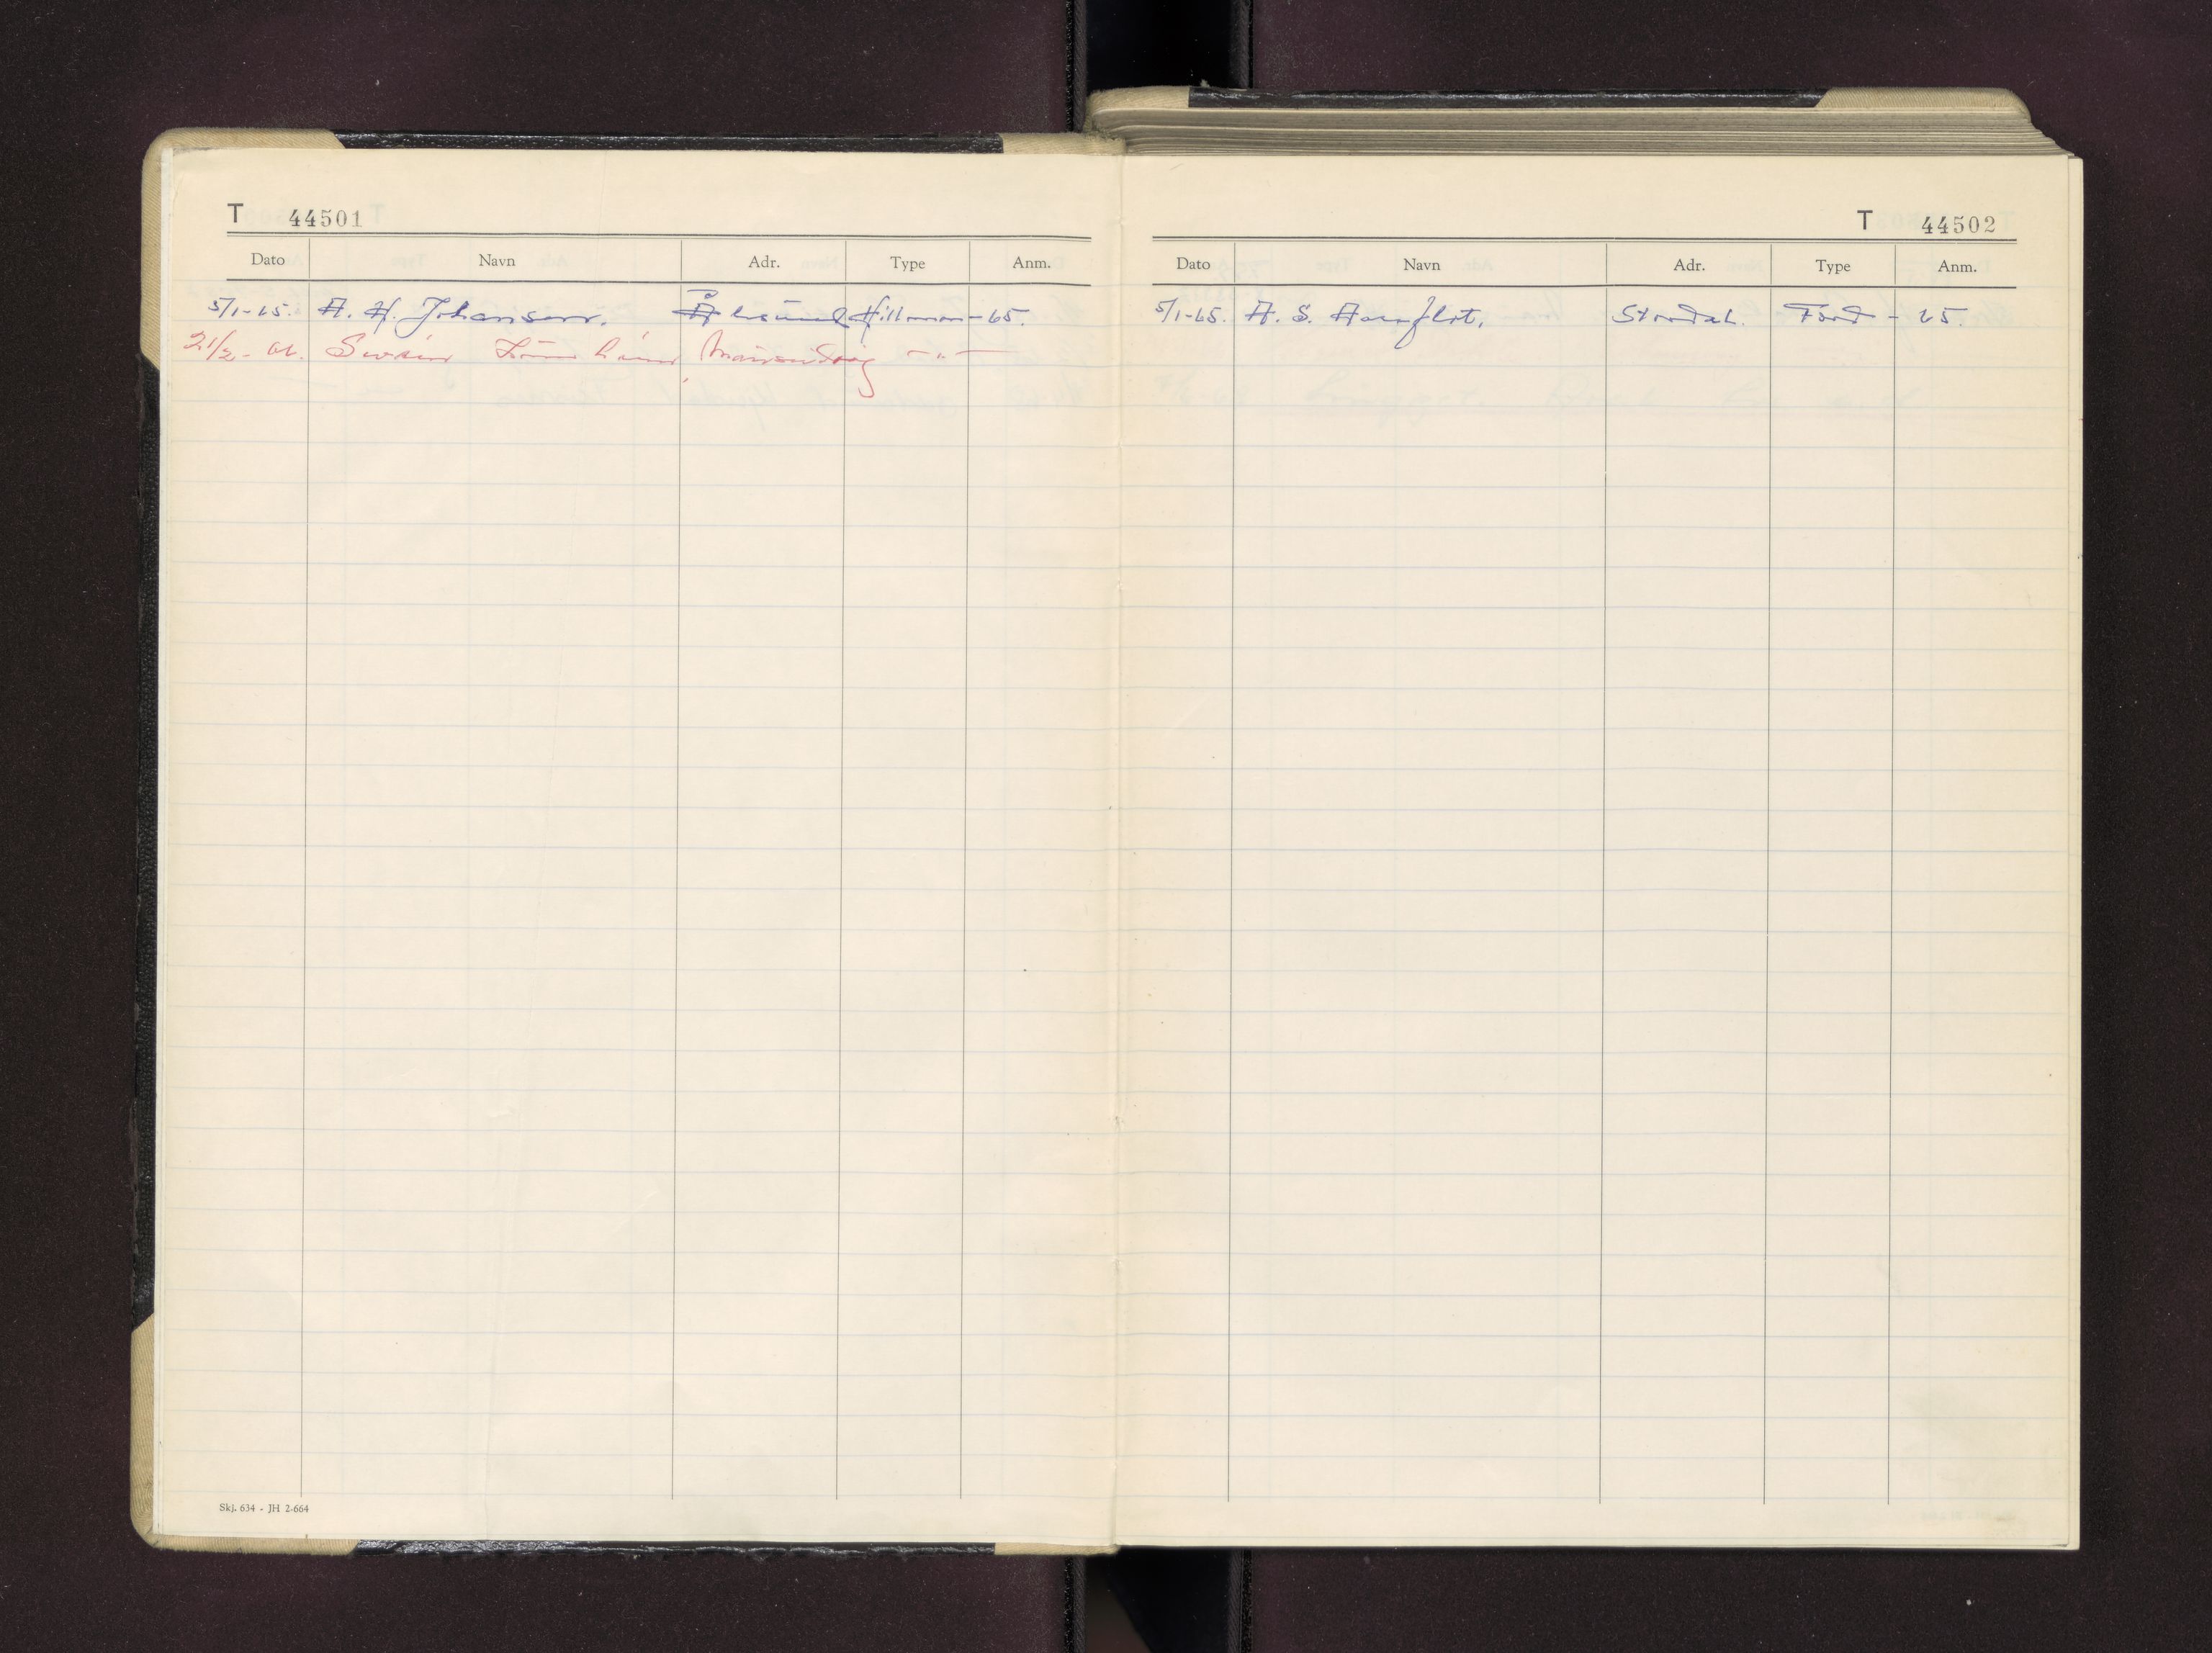 T 44501
Dato Navn Adr. Type Anm.
5/1-65. A. H. Johansen. Ålesund Hillman - 65.
21/2- Svein -"-
Skj. 634 - JH 2-664
T 44502
Dato Navn Adr. Type Anm.
5/1-65. A. S. Stordal. Ford - 65.